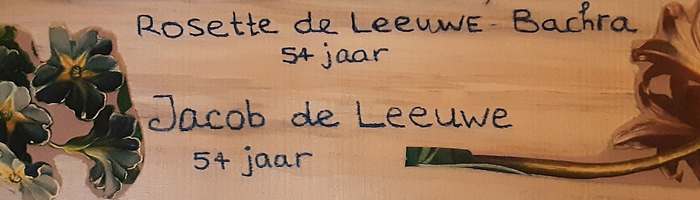 Rosette de Leeuwe - Bachra
54 jaar
Jacob de Leeuwe
54 jaar